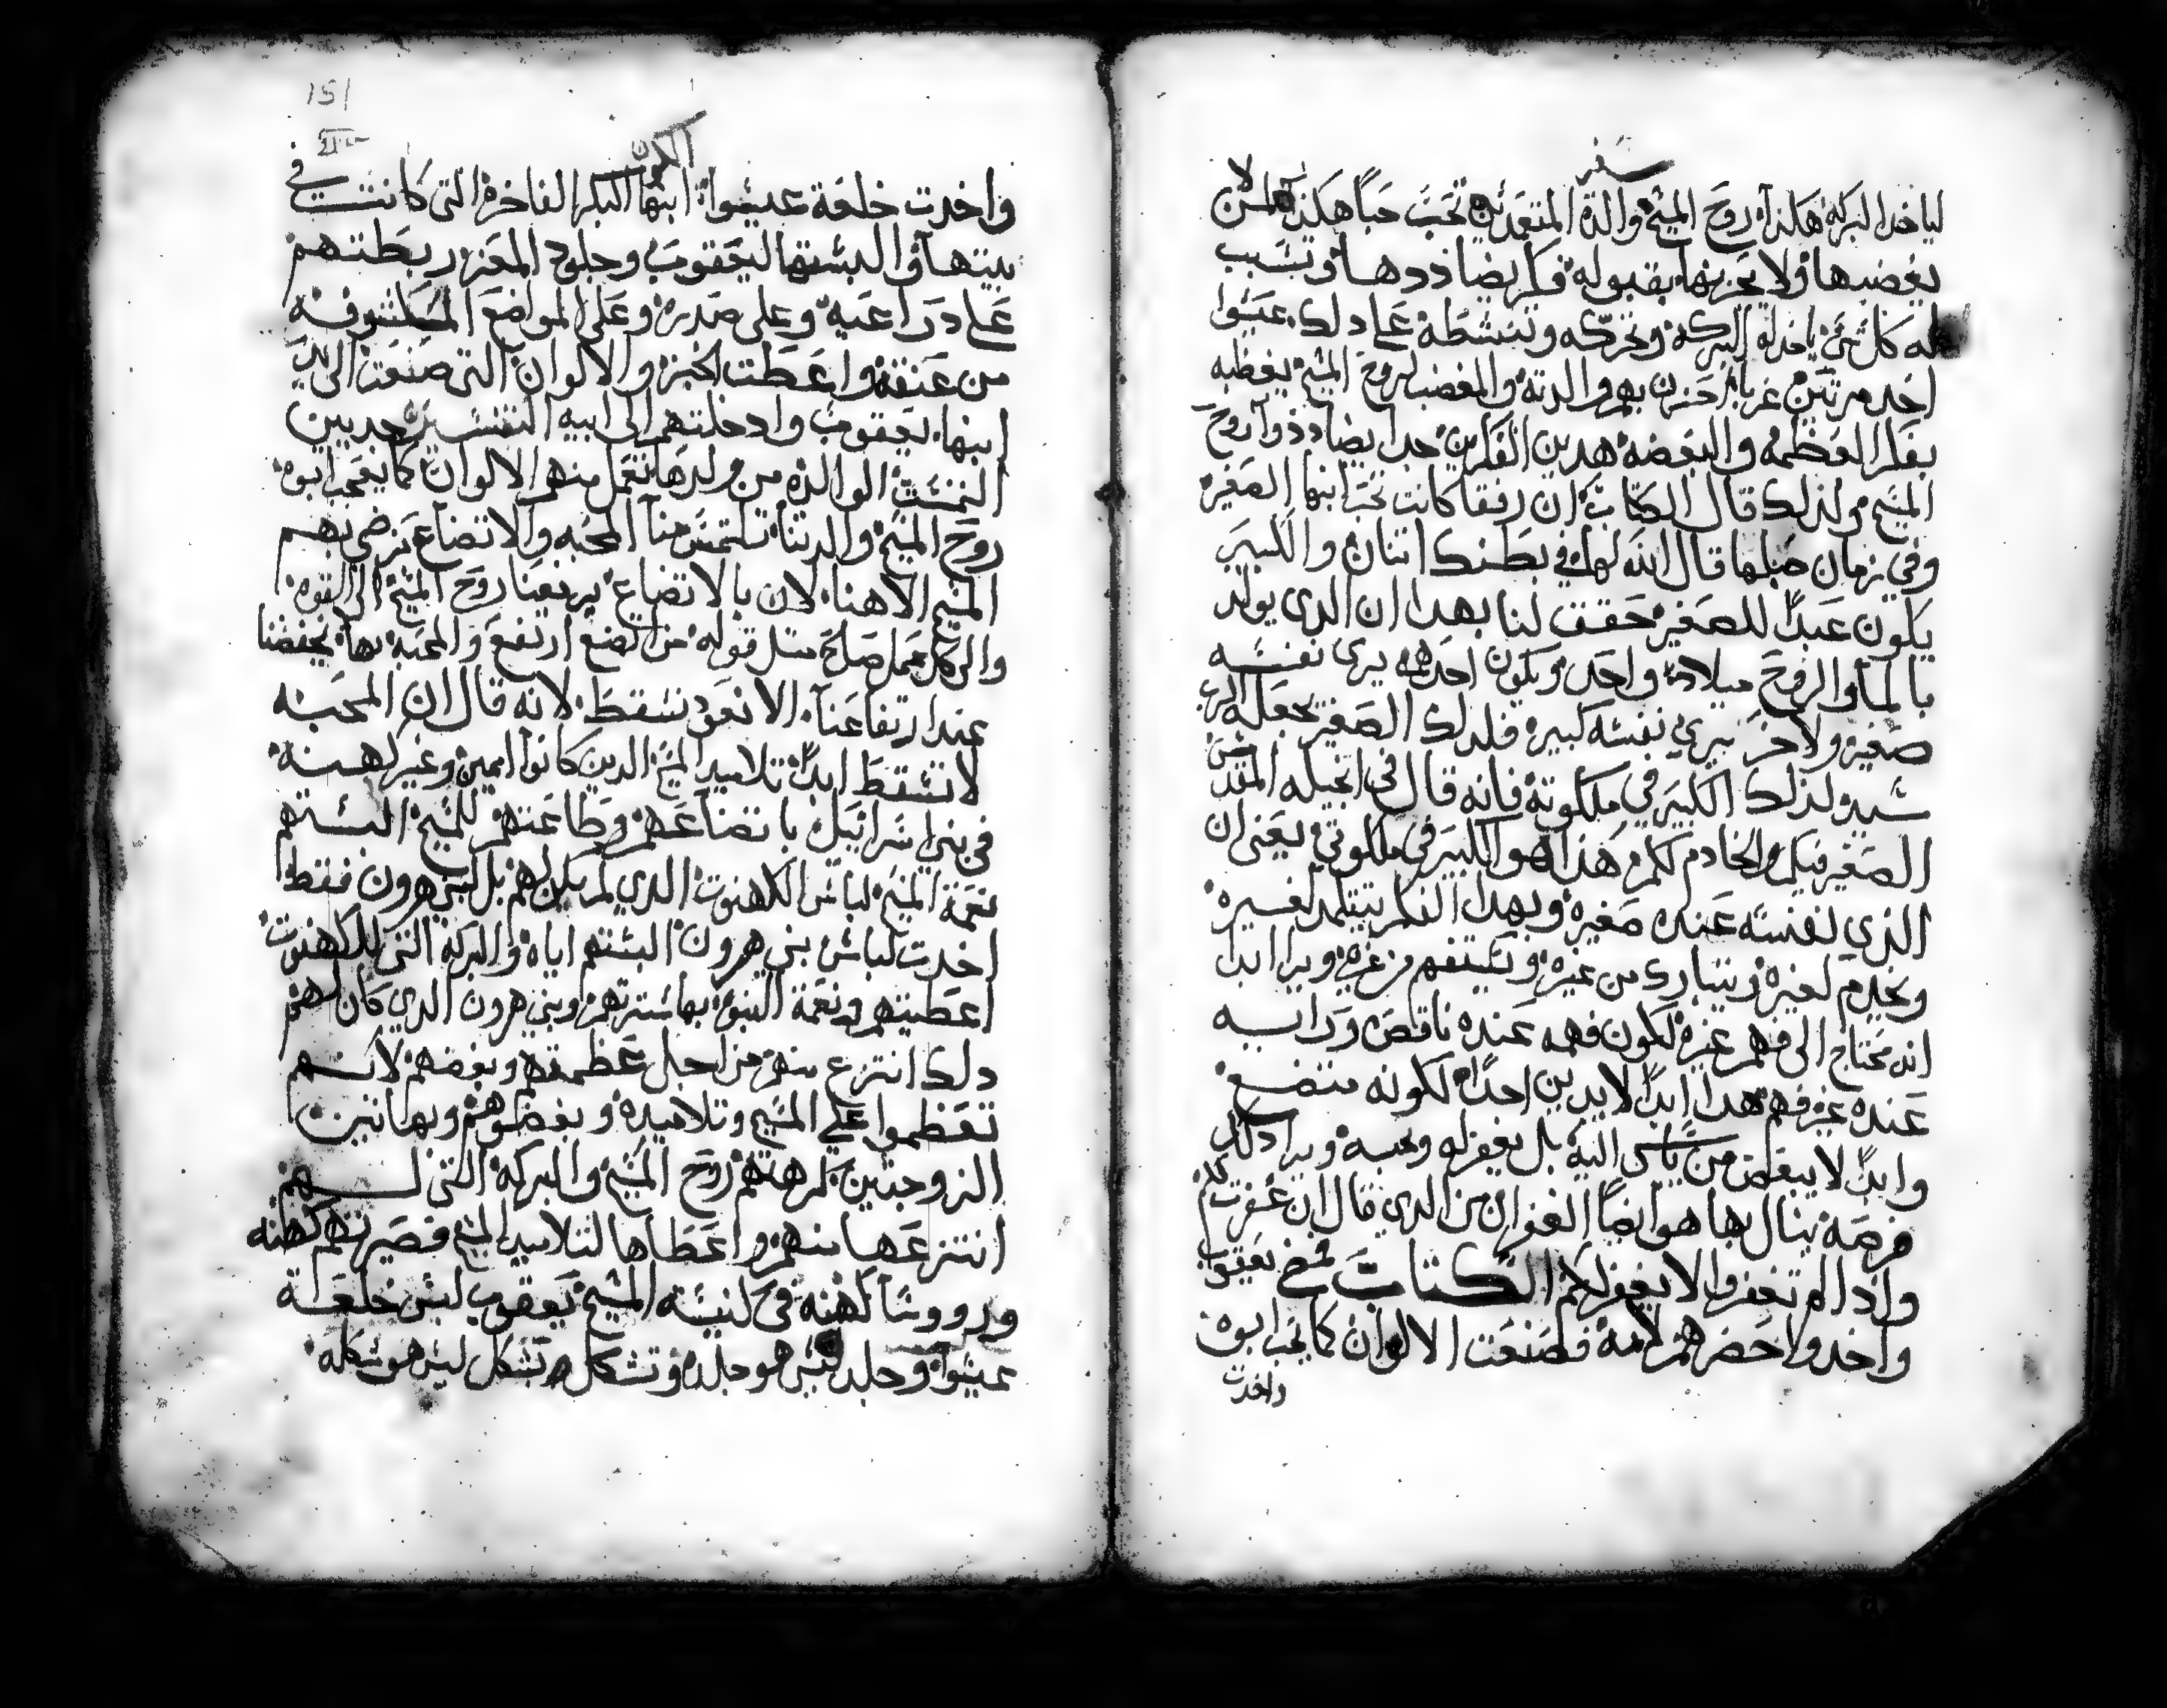 سفر
لياخد البركه هكذا روح المسيح والدة المتعمدين تحب حباً هكذا لمن لا
يغضبها ولا يحزنها بقبوله فكر يضاددها وتسبب
له كل شي ياخد له البركة وتحركه وتنشطه علي دلك عيسوا
اخد مرتين غربا حزن بهم والدته والمغضب لروح المسيح يغضبه
بفكر العظمه والبغضه هدين الفكرين جدا يضاددوا روح
المسيح ولذلك قال الكتاب ان رفقا كانت تحب ابنها الصغير
وفي زمان حبلها قال الله لها في بطنك اتنان والكبير
يكون عبداً للصغير حقق لنا بهدا ان الدي يولد
بالما والروح ميلاد واحد ويكون احدهم يري نفسه
صغير والاخر يري نفسه كبيره فلدلك الصغير يجعله الرب
سيد ولذلك الكبير في ملكوته فانه قال في انجيله المقدس
الصغير فيكم والخادم لكم هذا هو الكبير في ملكوتي يعني ان
الذي نفسه عنده صغيره وبهدا الفكر يتلمد لغيره
ويخدم لغيره ويتبارك من غيره ويستفهم من غيره ويرا ابدا
انه محتاج الي فهم غيره لكون فهمه عنده ناقص ورايه
عنده غير فهم هدا ابداً لا يدين احداً لكونه متضع
وابداً لا يبغض من ياسي اليه بل يغفر له ويحبه ويرا دلك
فرصه ينال بها هو ايضاً الغفران من الدي قال ان غفرتم
وادا لم تغفروا لا يغفر لكم الكتاب فمضي يعقوب
واخد واحضرهم لامه فصنعت الالوان كما يحب ابوه
واخدت
151
الكون
واخدت خلعة عيسوا ابنها البكر الفاخره التي كانت في
بيتها والبستها ليعقوب وجلود المعز ربطتهم
علي دراعيه وعلي صدره وعلي المواضع المكشوفه
من عنقه واعطت الخبز والالوان التي صنعت الي يد
ابنها يعقوب وادخلتهم الي ابيه التفسير جديين
التمست الوالده من ولدها تعمل منهم الالوان كما يحب ابوه
روح المسيح والدتنا تلتمس منا المحبه والاتضاع يرضي بهم
المسيح الاهنا لان بالاتضاع يرفعنا روح المسيح الي القوه
والي كل عمل صالح متل قوله من اتضع ارتفع والمحبه بها يحفضنا
عند ارتفاعنا الا نعود نسقط لانه قال ان المحبه
لا تسقط ابداً تلاميد المسيح الدين كانوا اميين وغير كهنه
في بني اسراييل باتضاعهم وطاعتهم للمسيح البستهم
نعمة المسيح لباس الكهنوت الدي لم يكن لهم بل لبني هرون فقط
اخدت لباس بني هرون البستهم اياه والبركه التي للكهنوت
اعطيتهم ونعمة النبوه بها سترتهم وبني هرون الدي كان لهم
دلك انتزع منهم من اجل عظمتهم وبغضهم لانهم
تعظموا علي المسيح وتلاميده وبغضوهم وبهاتين
الزوجتين كرهتهم روح المسيح والبركه التي لهم
انتزعها منهم واعطاها لتلاميد المسيح فصيرتهم كهنه
وروسا كهنه في كنيسة المسيح يعقوب لبس خلعة
عيسوا وجلد ليس هو جلده وتشكل بتشكل ليس هو شكله